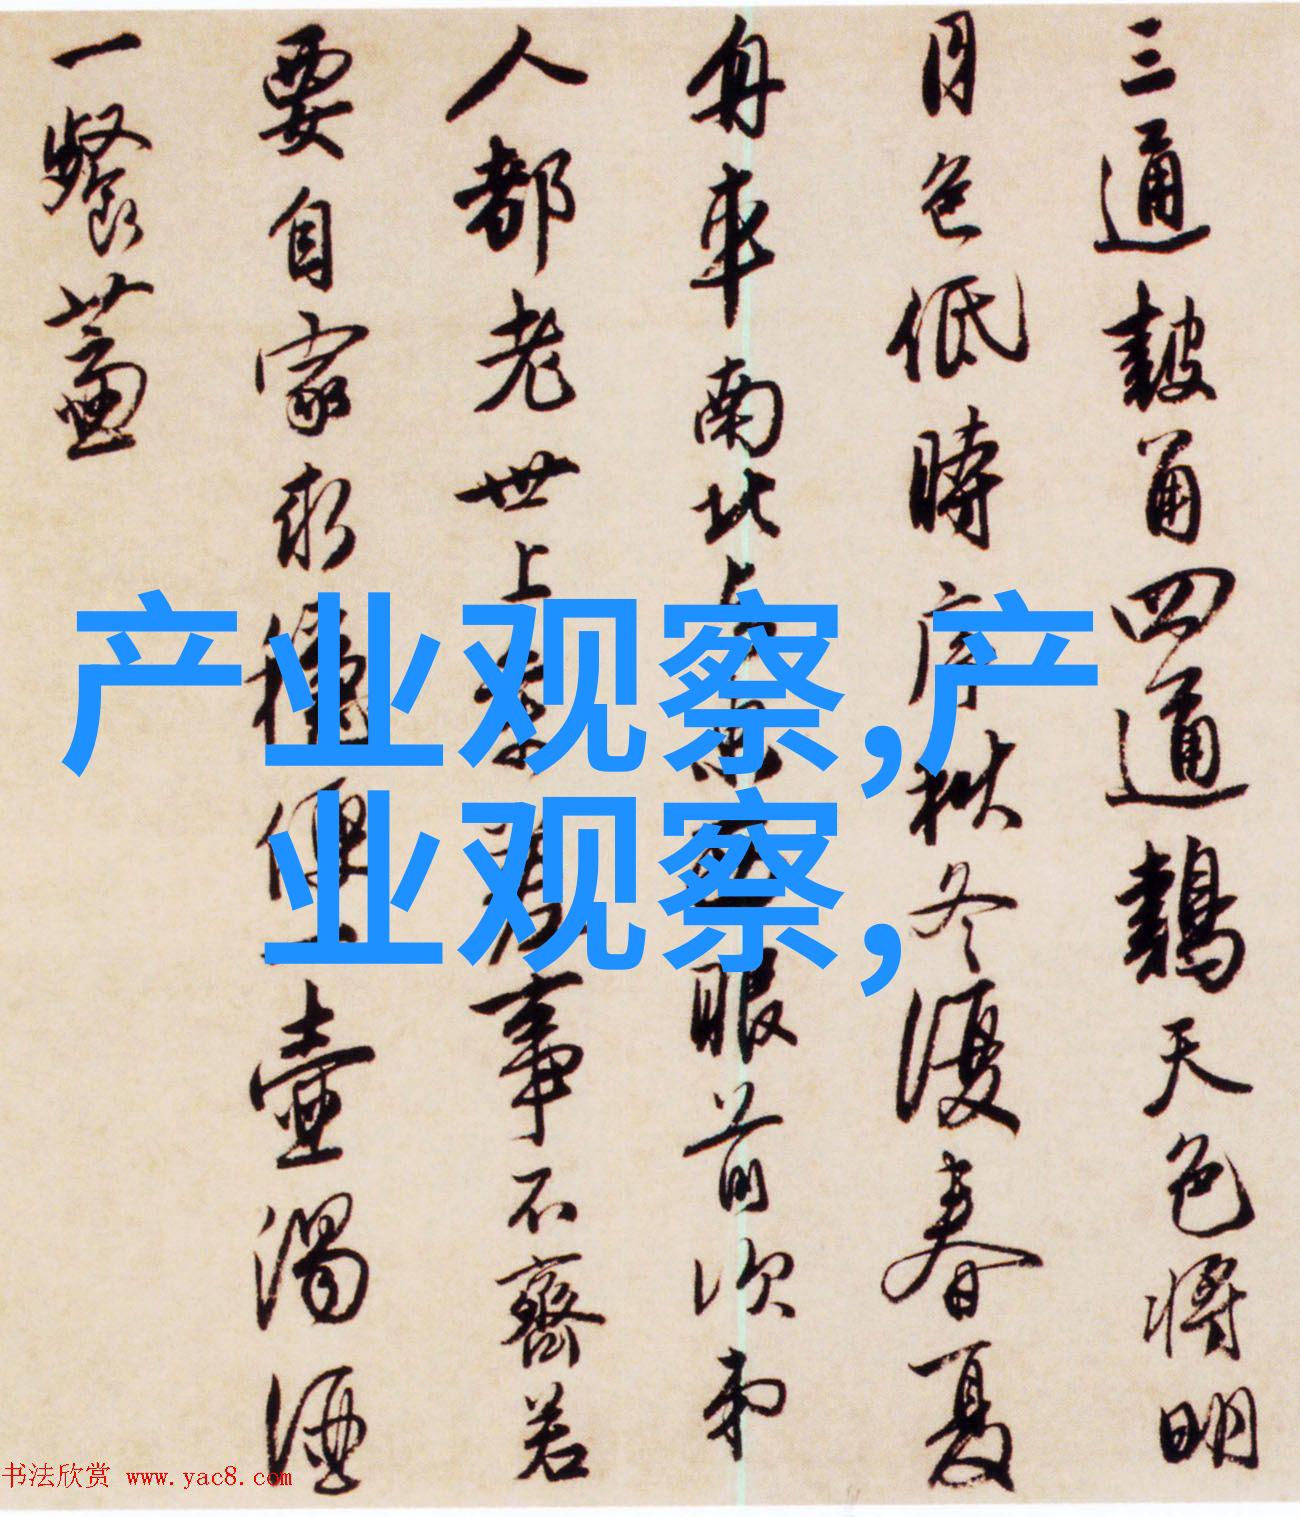 三通鼓角四通鷄天色将明
月色低時序秋冬復春夏
舟車南北東西眼前次第
人都老世上事不齊若
要自家求穩便一壺濁酒
一餐虀
产业观察,产
业观察,
书法欣赏 www.yac8.com